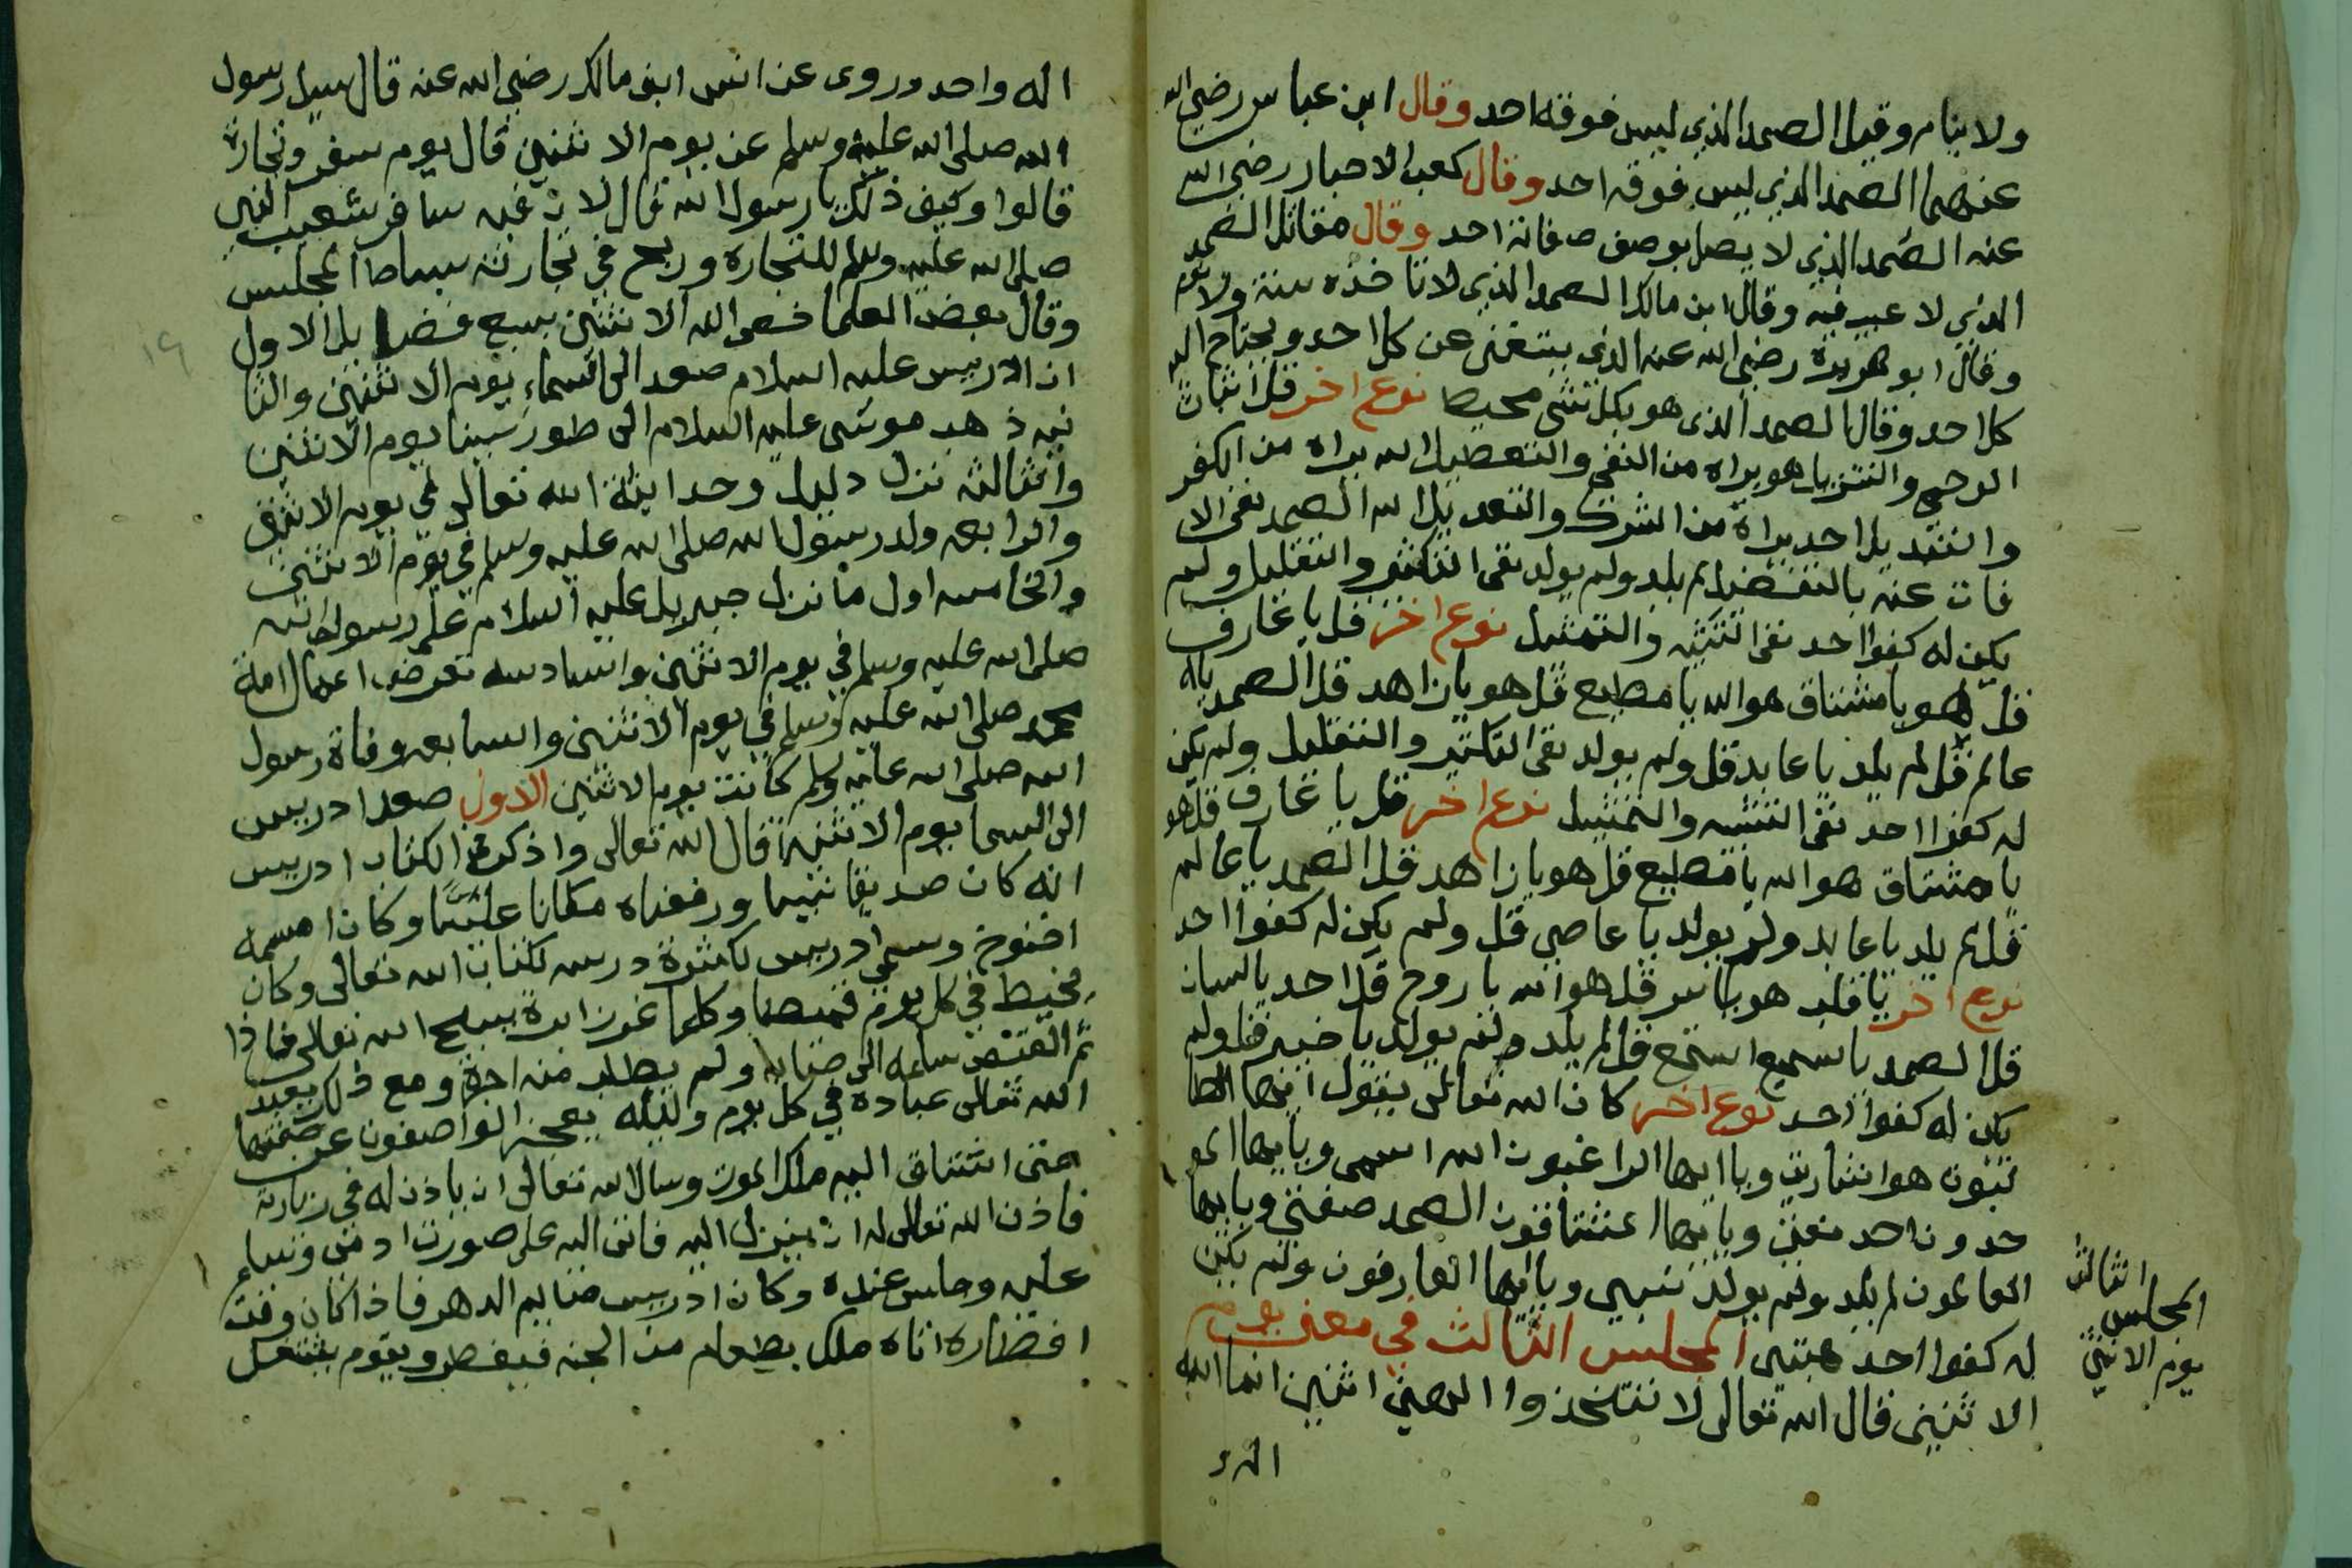 ولا ينام وقيل الصمد الذي ليس فوقه احد وقال ابن عباس رضي الله
عنهما الصمد الذي ليس فوقه احد وقال كعب الاحبار رضي الله
عنه الصمد الذي لا يصل بوصف صفاته احد وقال مقاتل الصمد
الذي لا عيب فيه وقال ابن مالك الصمد الذي لا تاخذه سنة ولا نوم
وقال ابو هريرة رضي الله عنه الذي يستغنى عن كل احد ويحتاج اليه
كل احد وقال الصمد الذى هو بكل شى محيط نوع اخر قل اثبات
الوحي والتنزيل هو براه من النفي والتعطيل الله براه من الكفر
والتنديل احد براة من الشرك والتعديل الله الصمد نفى الا
فات عنه بالتفضيل لم يلد ولم يولد نفى التكثير والتقليل ولم
يكن له كفوا احد نفى التشبيه والتمثيل نوع اخر قل يا عارف
قل هو يا مشتاق هو الله يا مطيع قل هو يا زاهد قل الصمد يا
عالم قل لم يلد يا عابد قل ولم يولد نفى التكثير والتقليل ولم يكن
له كفوا احد نفى التشبيه والتمثيل نوع اخر قل يا عارف قل هو
يا مشتاق هو الله يا مطيع قل هو يا زاهد قل الصمد يا عالم
قل لم يلد يا عابد ولم يولد يا عاصي قل ولم يكن له كفوا احد
نوع اخر يا قلب هو يا سر قل هو الله يا روح قل احد يا لسان
قل الصمد يا سميع استمع قل لم يلد ولم يولد يا خبير قل ولم
يكن له كفوا احد نوع اخر كان الله تعالى يقول ايها الطا
لبون هو اشارتي ويا ايها الراغبون الله اسمى ويا ايها المو
حدون احد نعتي ويا ايها المشتاقون الصمد صفتي ويا ايها
العالمون لم يلد ولم يولد ويا ايها العارفون ولم يكن
له كفوا احد هيبتى المجلس الثالث في معنى يوم
الاثنين قال الله تعالى لا تتخذوا الهين اثنين انما الله
اله
الثالث
المجلس
يوم الاثنين
اله واحد وروى عن انس ابن مالك رضي الله عنه قال سيل رسول
الله صلى الله عليه وسلم عن يوم الاثنين قال يوم سفر وتجارة
قالوا وكيف ذلك يا رسول الله قال لان فيه سافر شعيب النبي
صلى الله عليه وسلم للتجارة وربح في تجارته بساط المجلس
وقال بعض العلما خص الله الاثنين بسبع فضايل الاول
ان ادريس عليه السلام صعد الى السماء يوم الاثنين والثا
نيه ذهب موسى عليه السلام الى طور سينا يوم الاثنين
والثالثه نزل دليل وحدانية الله تعالى في يوم الاثنين
والرابعه ولد رسول الله صلى الله عليه وسلم في يوم الاثنين
والخامسه اول ما نزل جبريل عليه السلام على رسول الله
صلى الله عليه وسلم في يوم الاثنين والسادسه تعرض اعمال امة
محمد صلى الله عليه وسلم في يوم الاثنين والسابعه وفاة رسول
الله صلى الله عليه وسلم كانت يوم الاثنين الاول صعد ادريس
الى السما يوم الاثنين قال الله تعالى واذكر في الكتاب ادريس
انه كان صديقا نبيا ورفعناه مكانا عليا وكان اسمه
اخنوخ وسمي ادريس لكثرة درسه لكتاب الله تعالى وكان
يخيط في كل يوم قميصا وكلما غرز ابرة يسبح الله تعالى فاذا
تم القميص سلمه الى صاحبه ولم يطلب منه اجرة ومع ذلك يعبد
الله تعالى عبادة في كل يوم وليله يعجز الواصفون عن صفتها
حتى اشتاق اليه ملك الموت وسال الله تعالى ان ياذن له في زيارته
فاذن الله تعالى له ان ينزل اليه فاتى اليه على صورت ادمى وسلم
عليه وجلس عنده وكان ادريس صايم الدهر فاذا كان وقت
افطاره اتاه ملك بطعام من الجنه فيفطر ويقوم يشتغل
١٩